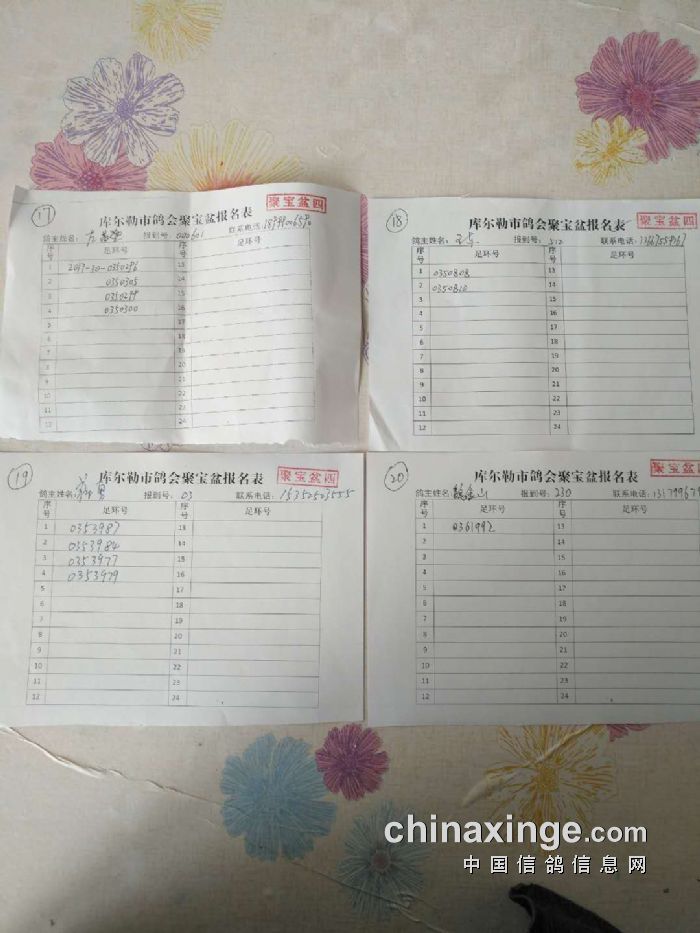 17
聚宝盆四
库尔勒市鸽会聚宝盆报名表
鸽主姓名: 报到号: 联系电话:
序号 足环号 序号 足环号
1 2017-30-0350296 13
2 0350305 14
3 0350299 15
4 0350300 16
5 17
6 18
7 19
8 20
9 21
10 22
11 23
12 24
18
聚宝盆四
库尔勒市鸽会聚宝盆报名表
鸽主姓名: 报到号: 512 联系电话:
序号 足环号 序号 足环号
1 0350808 13
2 0350810 14
3 15
4 16
5 17
6 18
7 19
8 20
9 21
10 22
11 23
12 24
19
聚宝盆四
库尔勒市鸽会聚宝盆报名表
鸽主姓名: 报到号: 03 联系电话: 15352523555
序号 足环号 序号 足环号
1 0353987 13
2 0353984 14
3 0353977 15
4 0353979 16
5 17
6 18
7 19
8 20
9 21
10 22
11 23
12 24
20
聚宝盆四
库尔勒市鸽会聚宝盆报名表
鸽主姓名: 报到号: 230 联系电话:
序号 足环号 序号 足环号
1 0361992 13
2 14
3 15
4 16
5 17
6 18
7 19
8 20
9 21
10 22
11 23
12 24
chinaxinge.com
中国信鸽信息网